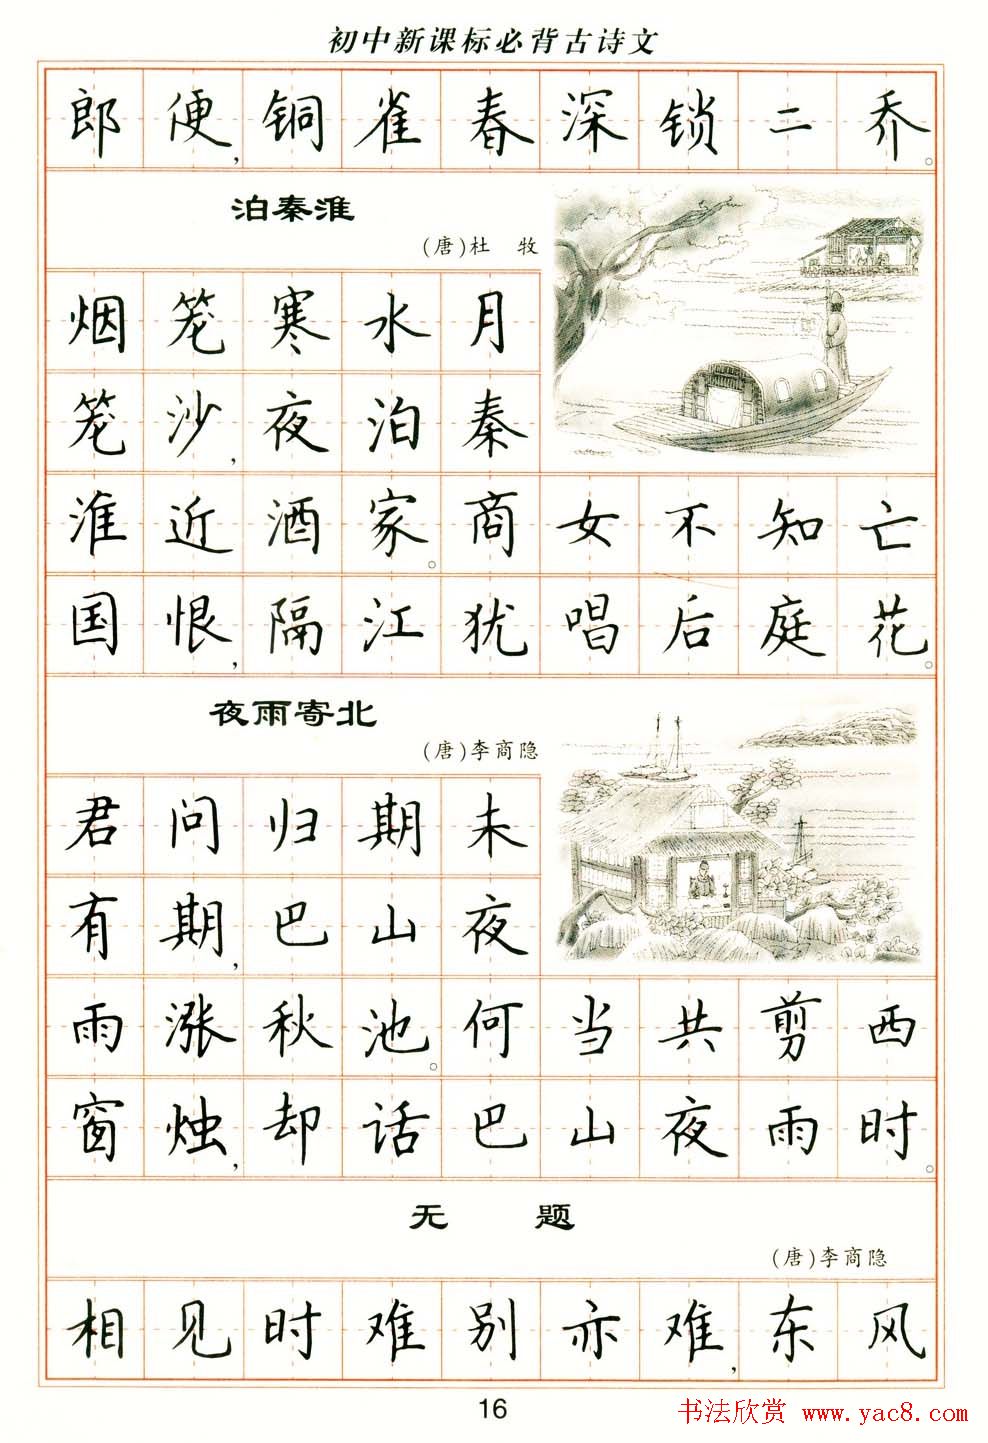 初中新课标必背古诗文
郎便,铜雀春深锁二乔。
泊秦淮
(唐)杜 牧
烟笼寒水月
笼沙,夜泊秦
淮近酒家。商女不知亡
国恨,隔江犹唱后庭花。
夜雨寄北
(唐)李商隐
君问归期未
有期,巴山夜
雨涨秋池。何当共剪西
窗烛,却话巴山夜雨时。
无 题
(唐)李商隐
相见时难别亦难,东风
16
书法欣赏 www.yac8.com